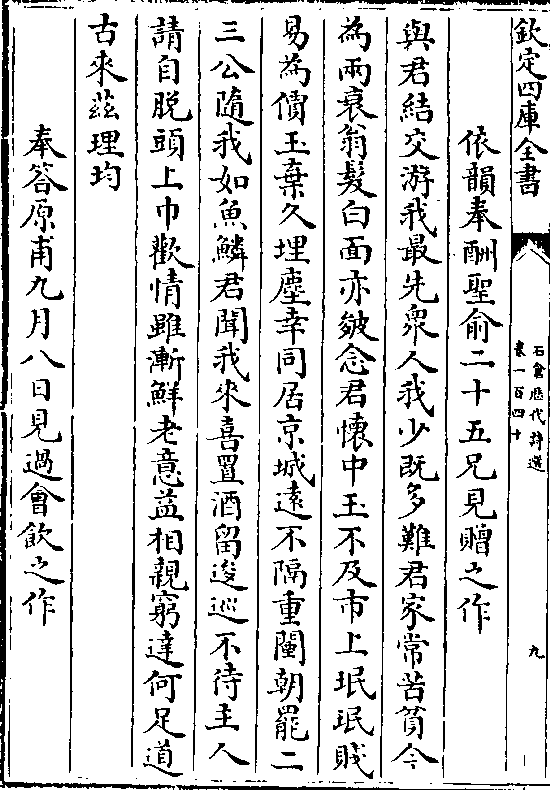 欽定四庫全書
石倉歷代詩選
卷一百四十
九
依韻奉酬聖俞二十五兄見贈之作
與君結交游我最先衆人我少旣多難君家常苦貧今
為兩衰翁髪白面亦皴念君懷中玉不及市上珉珉賤
易為價玉棄久埋塵幸同居京城遠不隔重闉朝罷二
三公隨我如魚鱗君聞我來喜置酒留逡巡不待主人
請自脱頭上巾歡情雖漸鮮老意益相親窮達何足道
古來兹理均
奉答原甫九月八日見過會飲之作